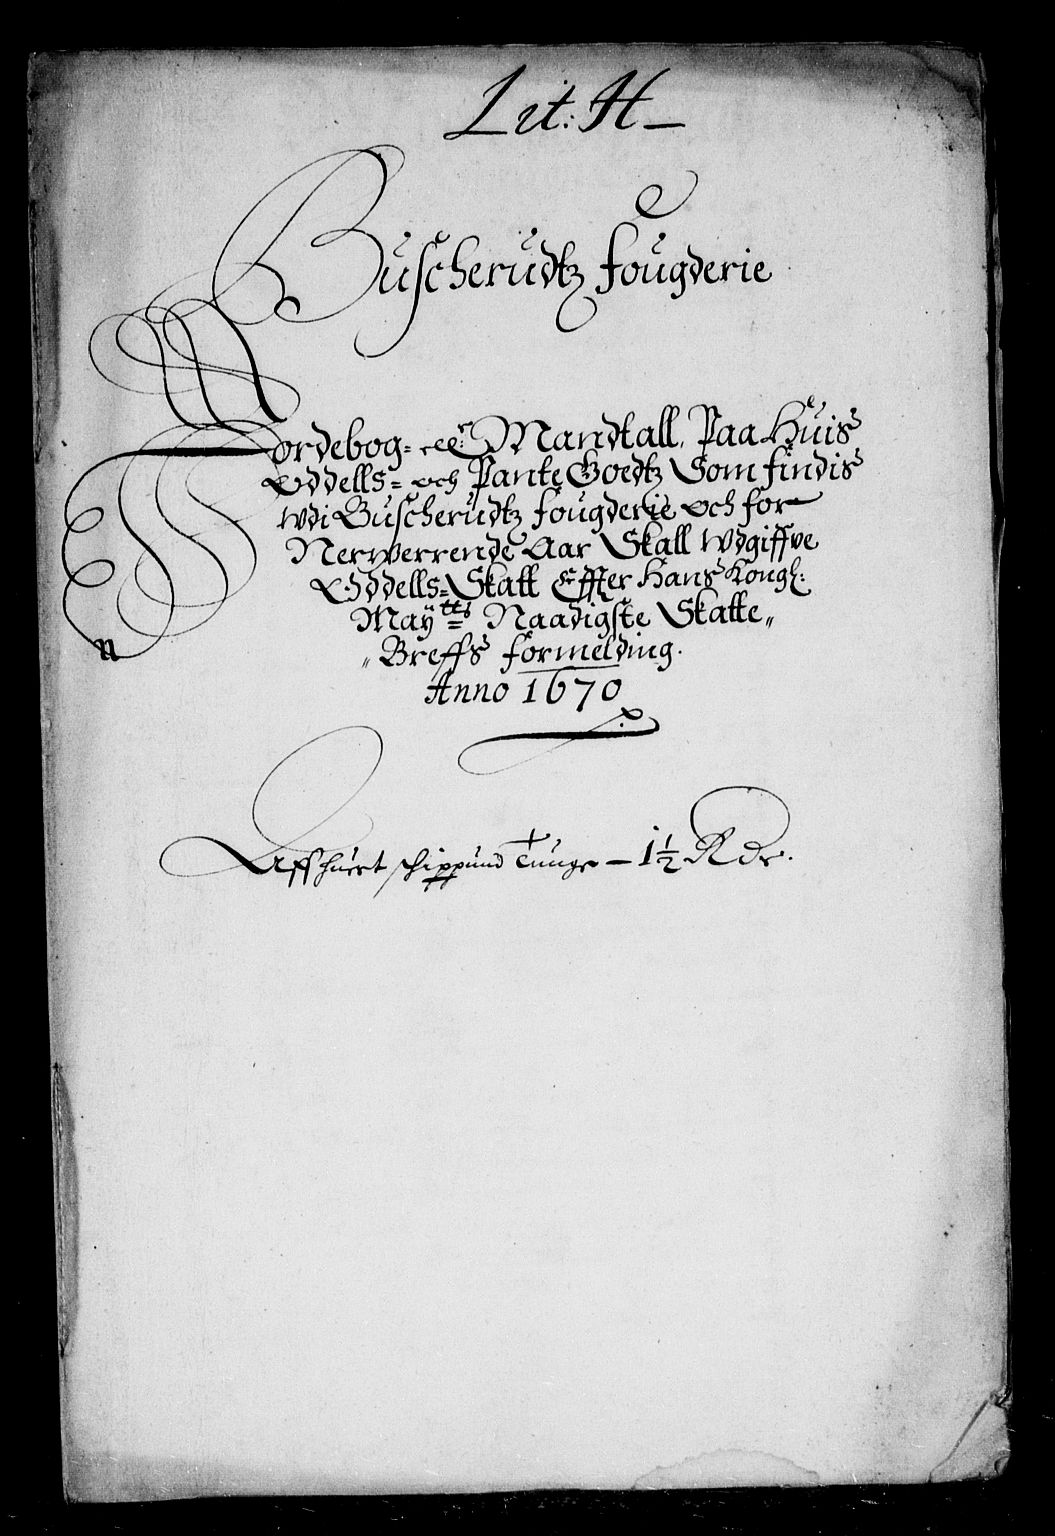 Lit: H
Buscherudtz fougderie
Jordebog= eller Mandtall, Paa Huis
Oddells= och Pante Goedtz Som findis
Wdi Buscherudtz fougderie och for
Nerwerrende Aar Skall Wdgiffve
Oddells=Skatt Effter Hans Kongl:
Maÿtts Naadigste Skatte„
„Breffs formelding.
Anno 1670
Aff huert schippund Tunge – 1½ Rdr.